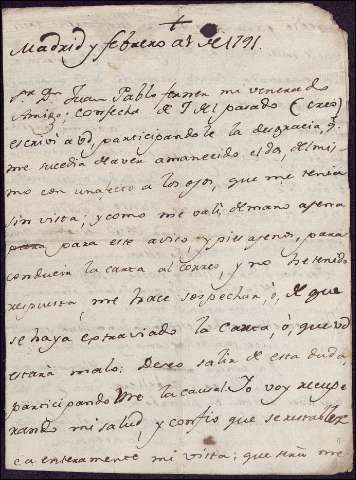 Madrid y febrero a 1 de 1791.
Sr. Dn. Juan Pablo forner mi venerado
Amigo; con fecha de 7 del pasado (creo)
escrivi a vd, participandole la desgracia, q.
me sucedia de aver amanecido el dos, del mis
mo con un afecto a los ojos, que me tenia
sin vista; y como me vali, de mano agena
para este aviso, y pies agenos, para
conducir la carta al correo, y no he tenido
respuesta, me hace sospechar, ó, de que
se haya extraviado la carta, ó, que vd
estara malo: Deseo salir de esta duda,
participandome la causa. Yo voy recupe
rando mi salud, y confio que se restablez
ca enteramente mi vista; que sera me